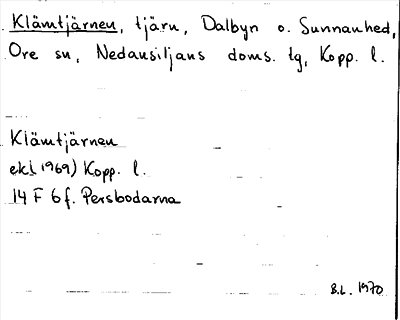 Klämtjärnen, tjärn, Dalbyn o. Sunnanhed,
Ore sn, Nedansiljans doms. tg, Kopp. l.
Klämtjärnen
ekl. 1969) Kopp. l.
14 F 6 f. Persbodarna
B.L. 1970